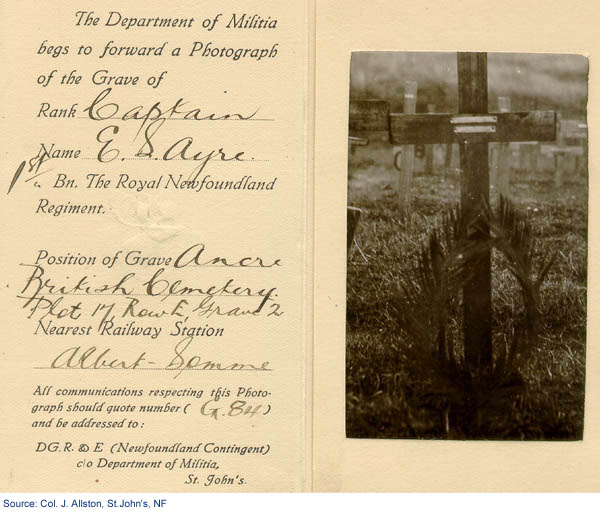 The Department of Militia
begs to forward a Photograph
of the Grave of
Rank Captain
Name E. S. Ayre.
1st. Bn. The Royal Newfoundland
Regiment.
Position of Grave Ancre
British Cemetery.
Plot 17, Row E, Grave 2
Nearest Railway Station
Albert - Somme
All communications respecting this Photo-
graph should quote number ( G. 84 )
and be addressed to:
DG.R. & E (Newfoundland Contingent)
c/o Department of Militia,
St. John's.
Source: Col. J. Allston, St.John's, NF